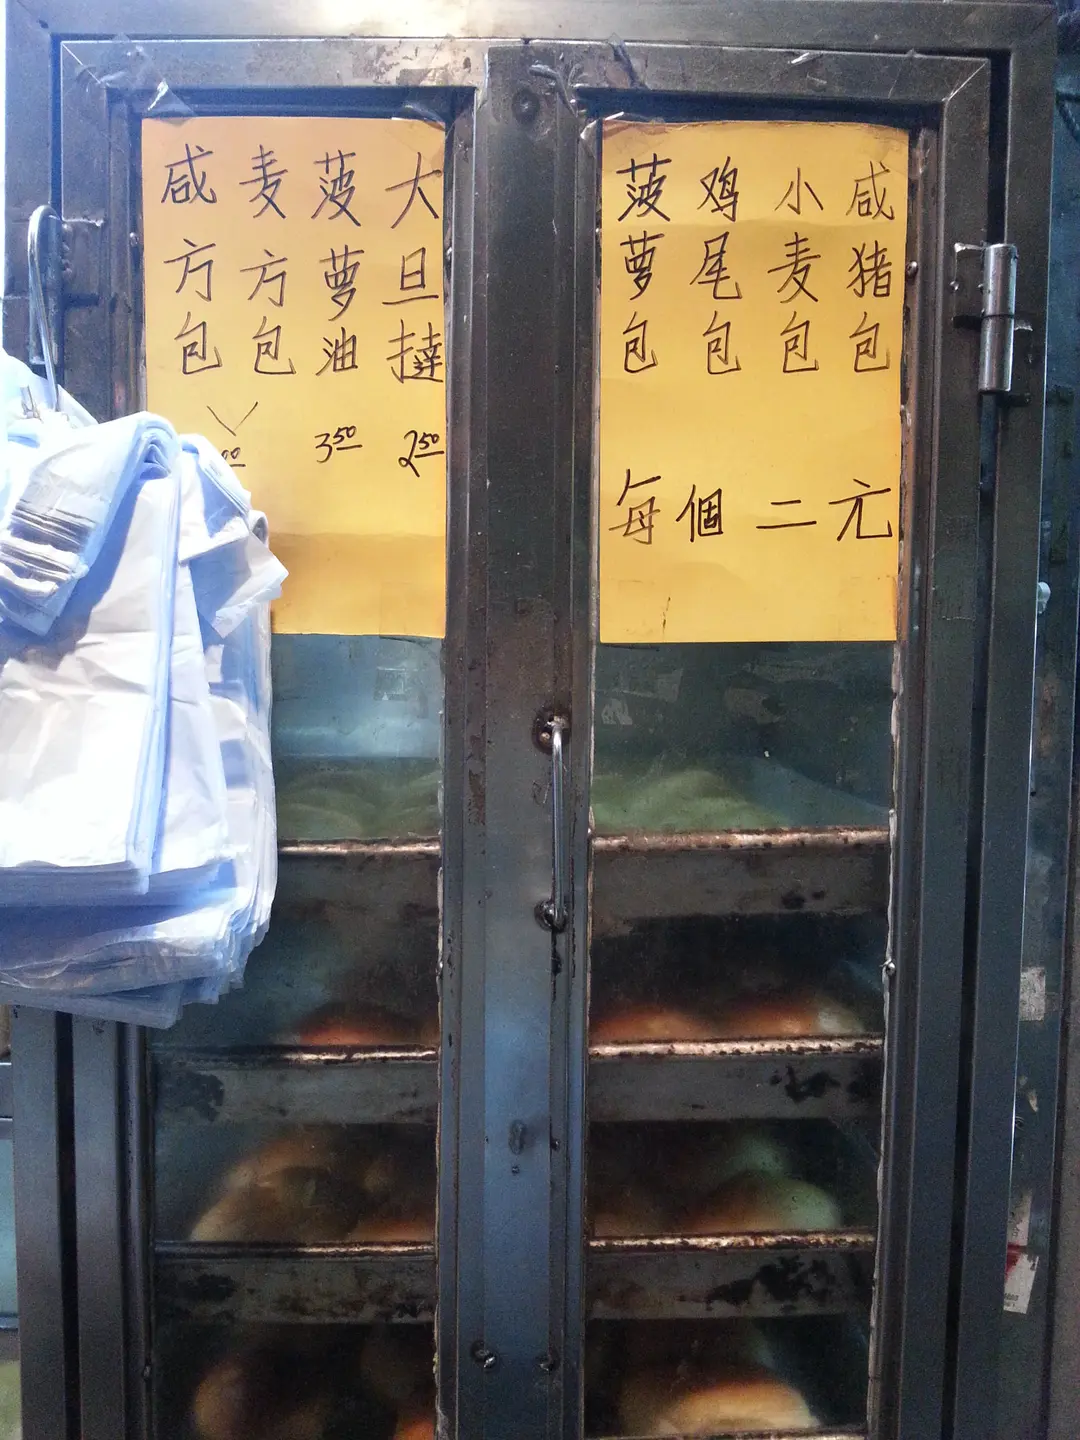 咸方包
麦方包
菠萝油
3⁵⁰
大旦撻
2⁵⁰
菠萝包
鸡尾包
小麦包
咸猪包
每個二元